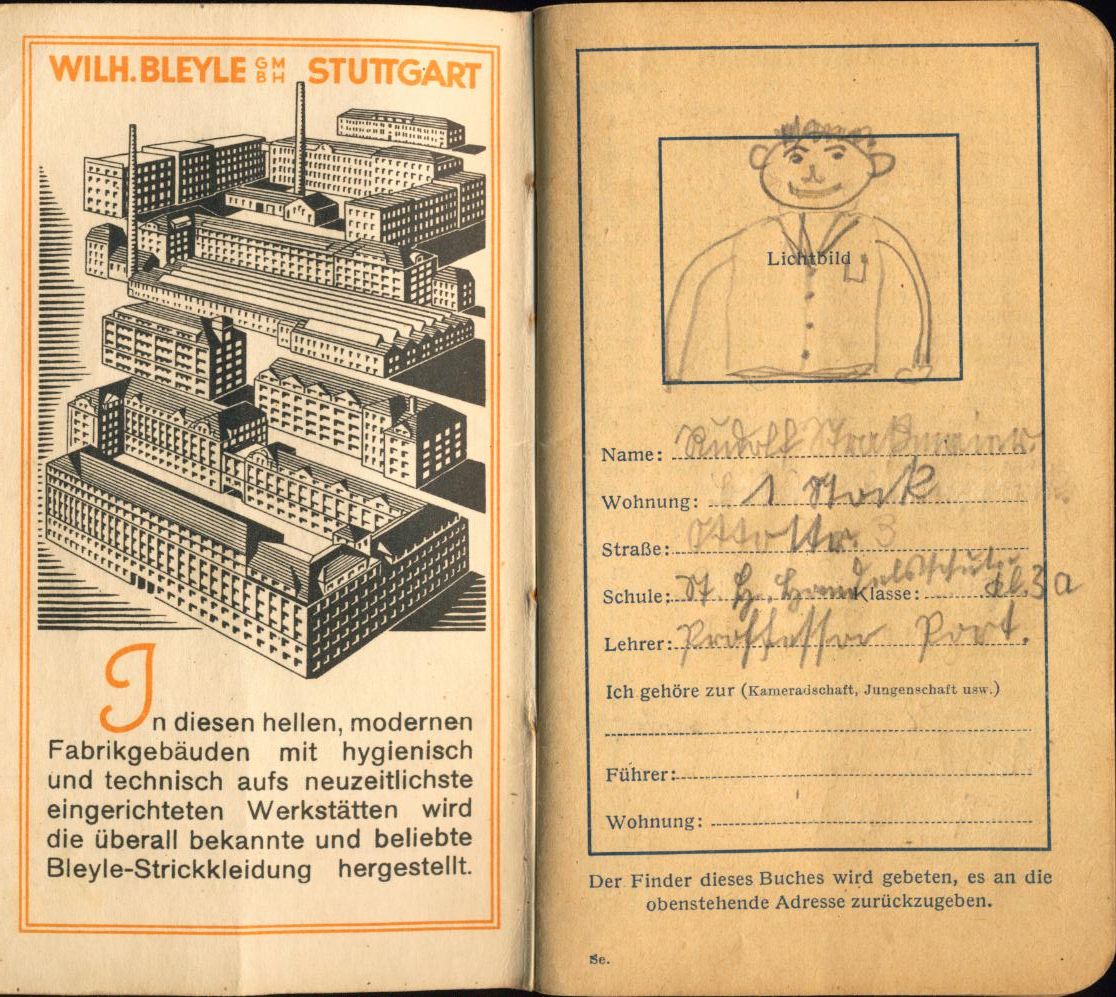 WILH. BLEYLE GMBH STUTTGART
In diesen hellen, modernen
Fabrikgebäuden mit hygienisch
und technisch aufs neuzeitlichste
eingerichteten Werkstätten wird
die überall bekannte und beliebte
Bleyle-Strickkleidung hergestellt.
Lichtbild
Name: Rudolf Straßmaier
Wohnung: 1 Stock
Straße: Ottostr. 3
Schule: St. H. Handelsschule Klasse: Kl. 3a
Lehrer: Proffessor Port.
Ich gehöre zur (Kameradschaft, Jungenschaft usw.)
Führer:
Wohnung:
Der Finder dieses Buches wird gebeten, es an die
obenstehende Adresse zurückzugeben.
Se.